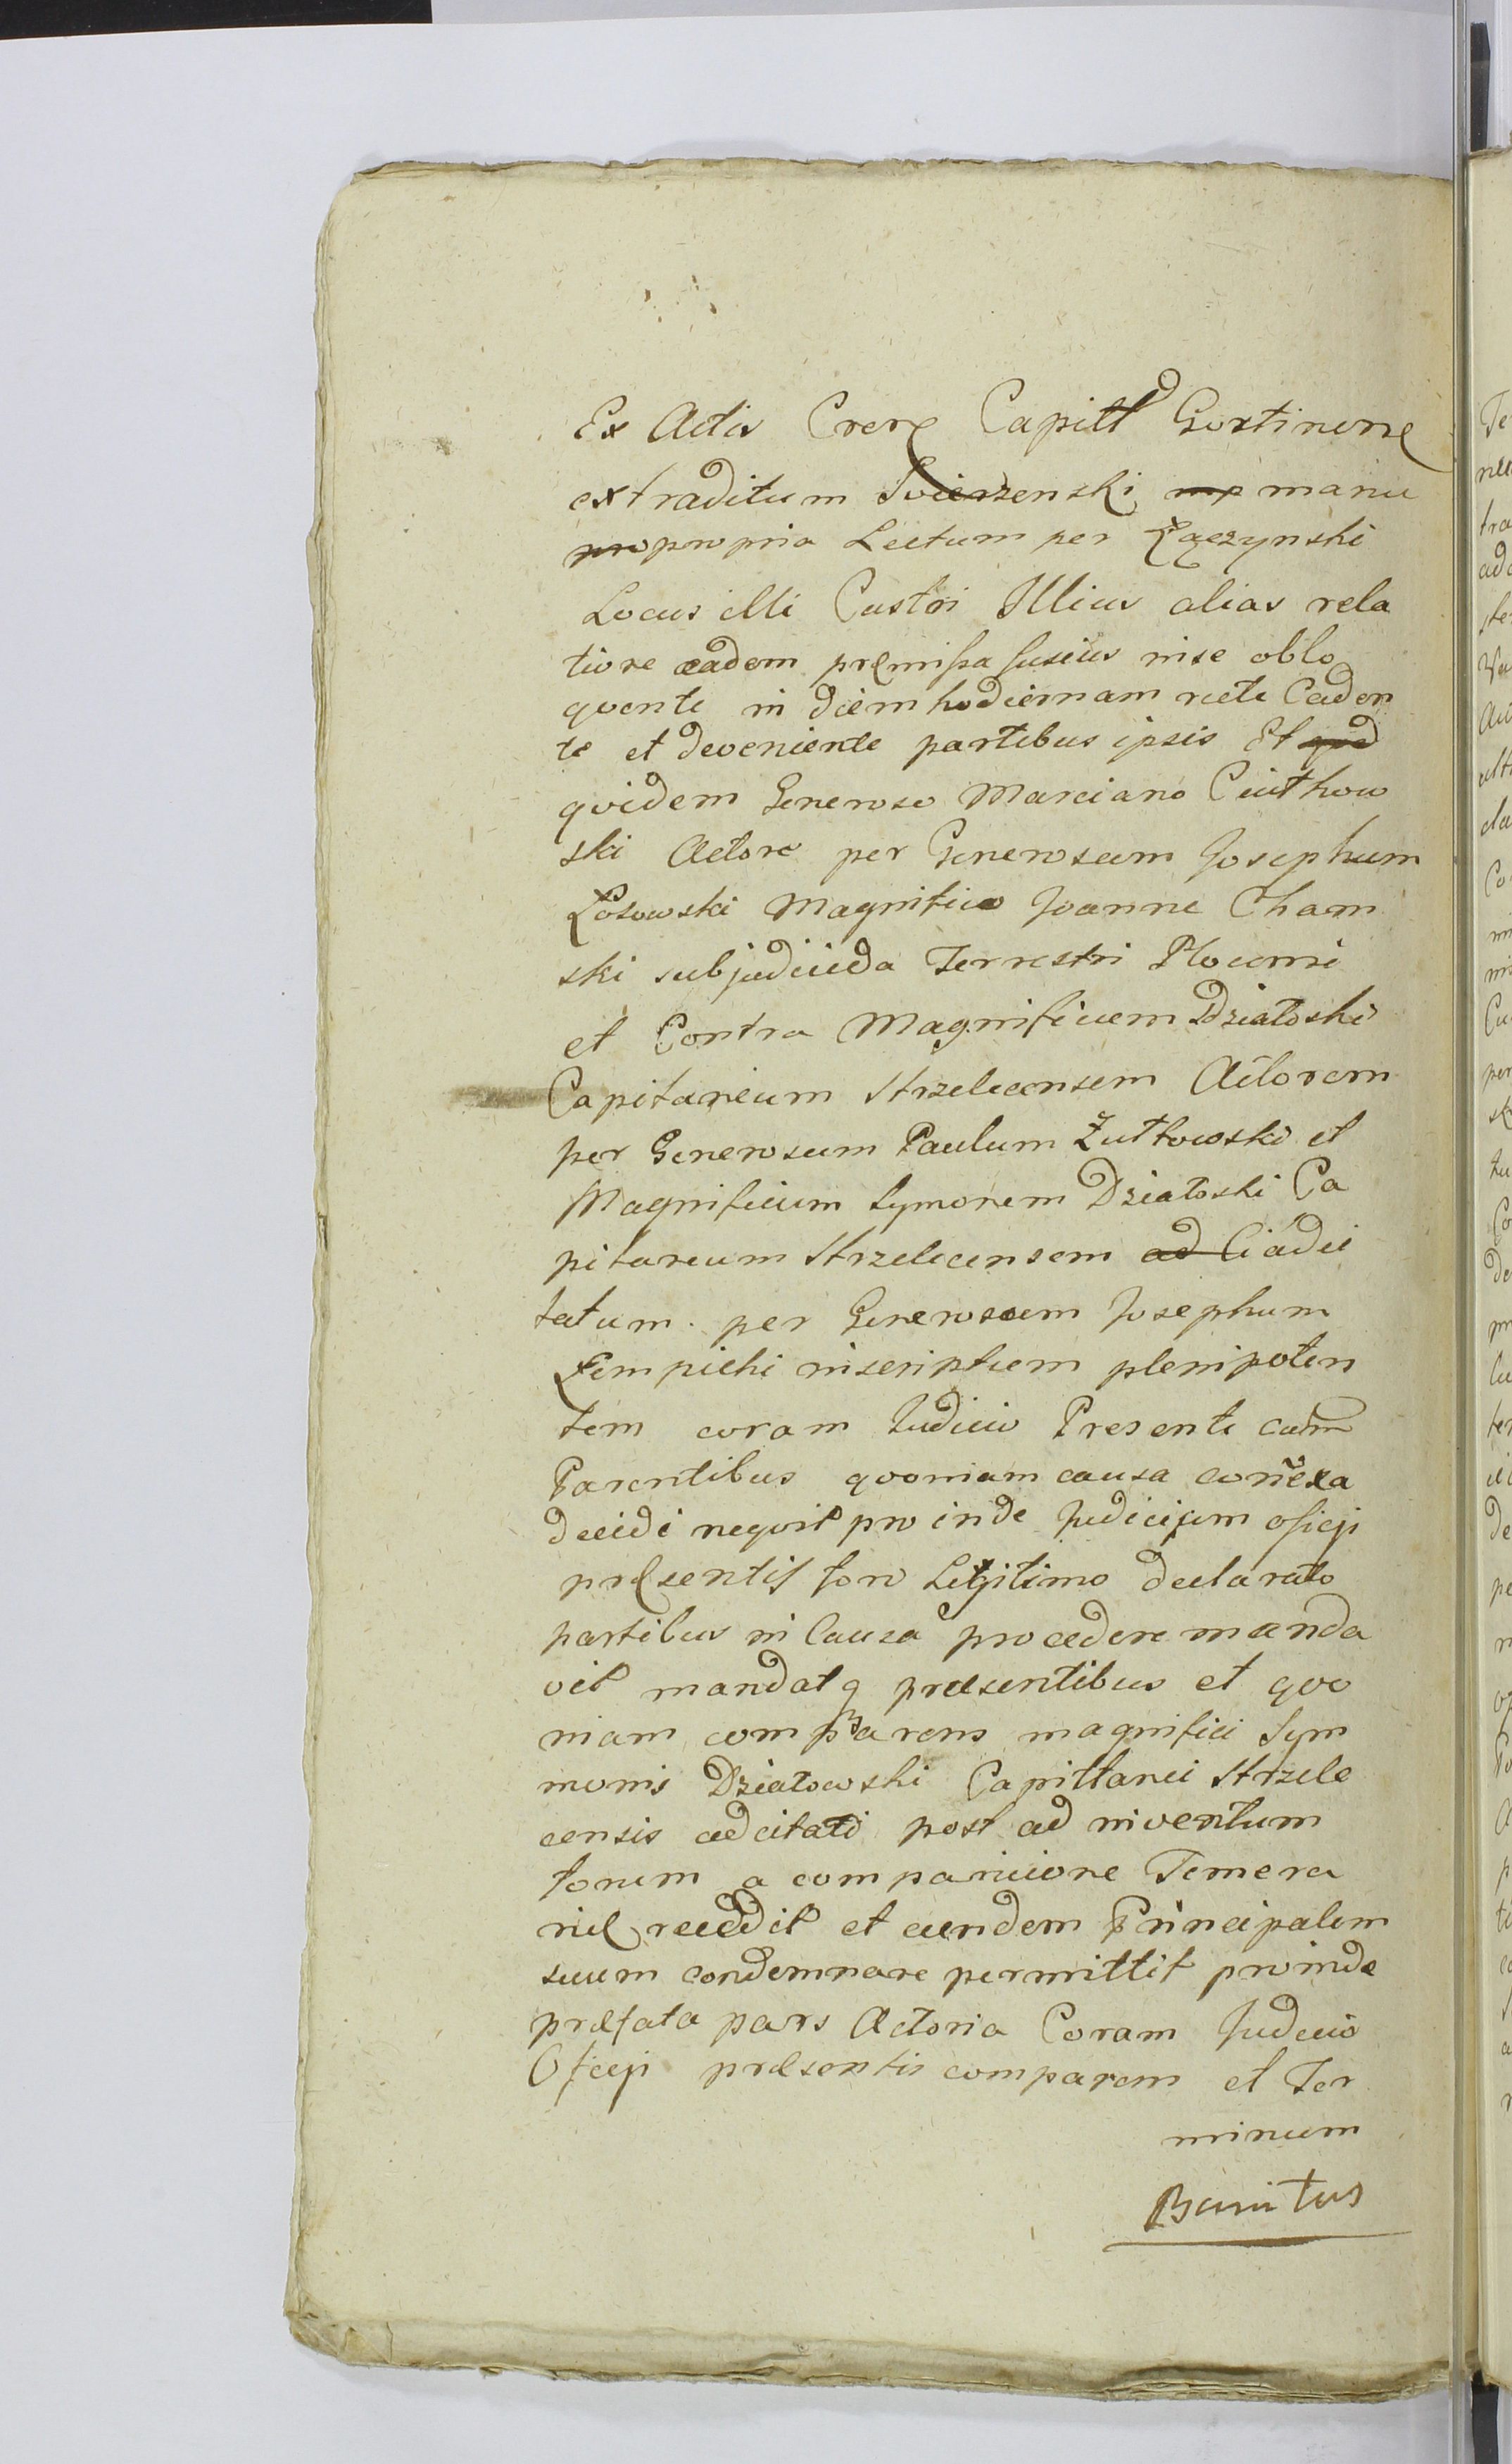 Ex Actis Crere Capittl Gostinene
extraditum Swierzenski mp manu
pro propria Lectum per Łączynski
Locus illi Castri Illius alias rela
tiore eadem premissa fusius in se oblo
quente in diem hodiernam recte Caden
te et deveniente partibus ipsis Et qvd
qvidem Generoso Marciano Ciuthow
ski Actore per Generosum Josephum
Łosowski Magnifico Joanne Cham
ski subjudicida Terrestri Plocensi
et Contra Magnificum Działoski
Capitaneum Strzelecensem Actorem
per Generosum Paulum Żułtowski et
Magnificum Symonem Działoski Ca
pitaneum Strzelecensem ad Ciadci
tatum per Generosum Josephum
Łempicki inscriptum plenipoten
tem coram Judicio Presente com
Parentibus qvoniam causa conexa
decidi neqvit pro inde Judicium oficji
præsentis foro Legitimo declarato
partibus in Causa procedere manda
vit mandatq præsentibus et qvo
niam comparens magnifici Sym
monis Działowski Capittanei Strzele
censis adcitati post ad inventum
forum a comparicione Temera
rie recedit et eundem Principalem
suum condemnare permittit proinde
præfata pars Actoria Coram Judicio
Oficji præsentis comparens et Ter
minum
Banitus